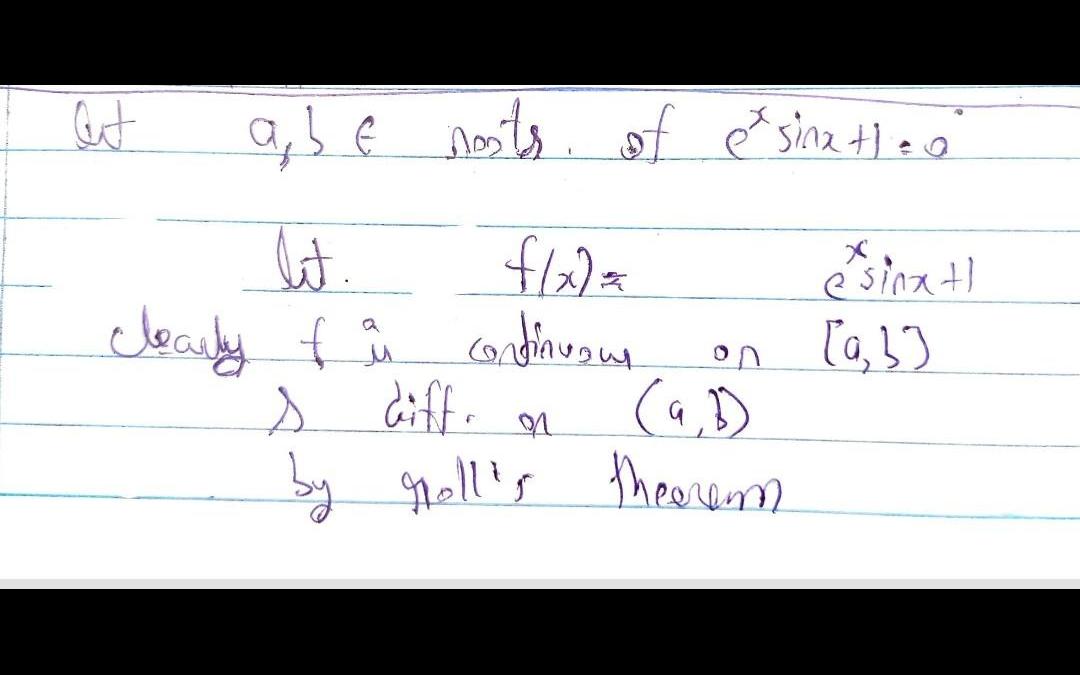 let a, b ∈ roots. of e^x sinx+1=0
let. f(x)= e^x sinx+1
clearly f is continuous on [a, b]
& diff. on (a, b)
by roll's theorem